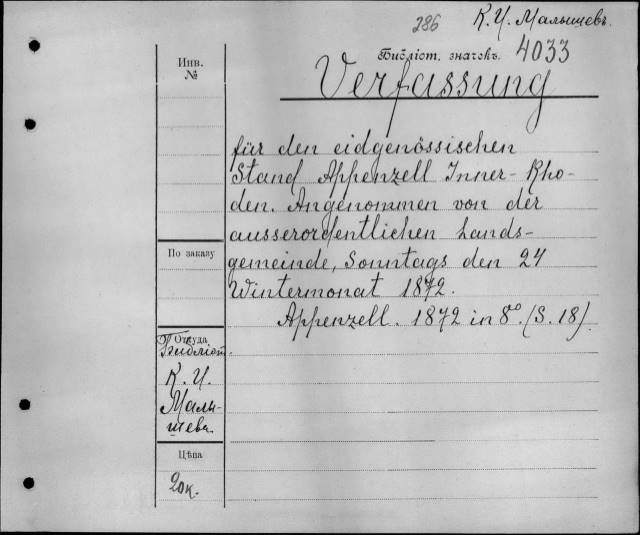 286
К. И. Малышевъ.
Библіот. значекъ. 4033
Инв.
№
Verfassung
für den eidgenössischen
Stand Appenzell Inner-Rho-
den. Angenommen von der
ausserordentlichen Lands-
gemeinde, Sonntags den 24
Wintermonat 1872.
Appenzell. 1872 in 8° (S. 18).
По заказу
Откуда
Библіот.
К. И.
Малы-
шева
Цѣна
20к.